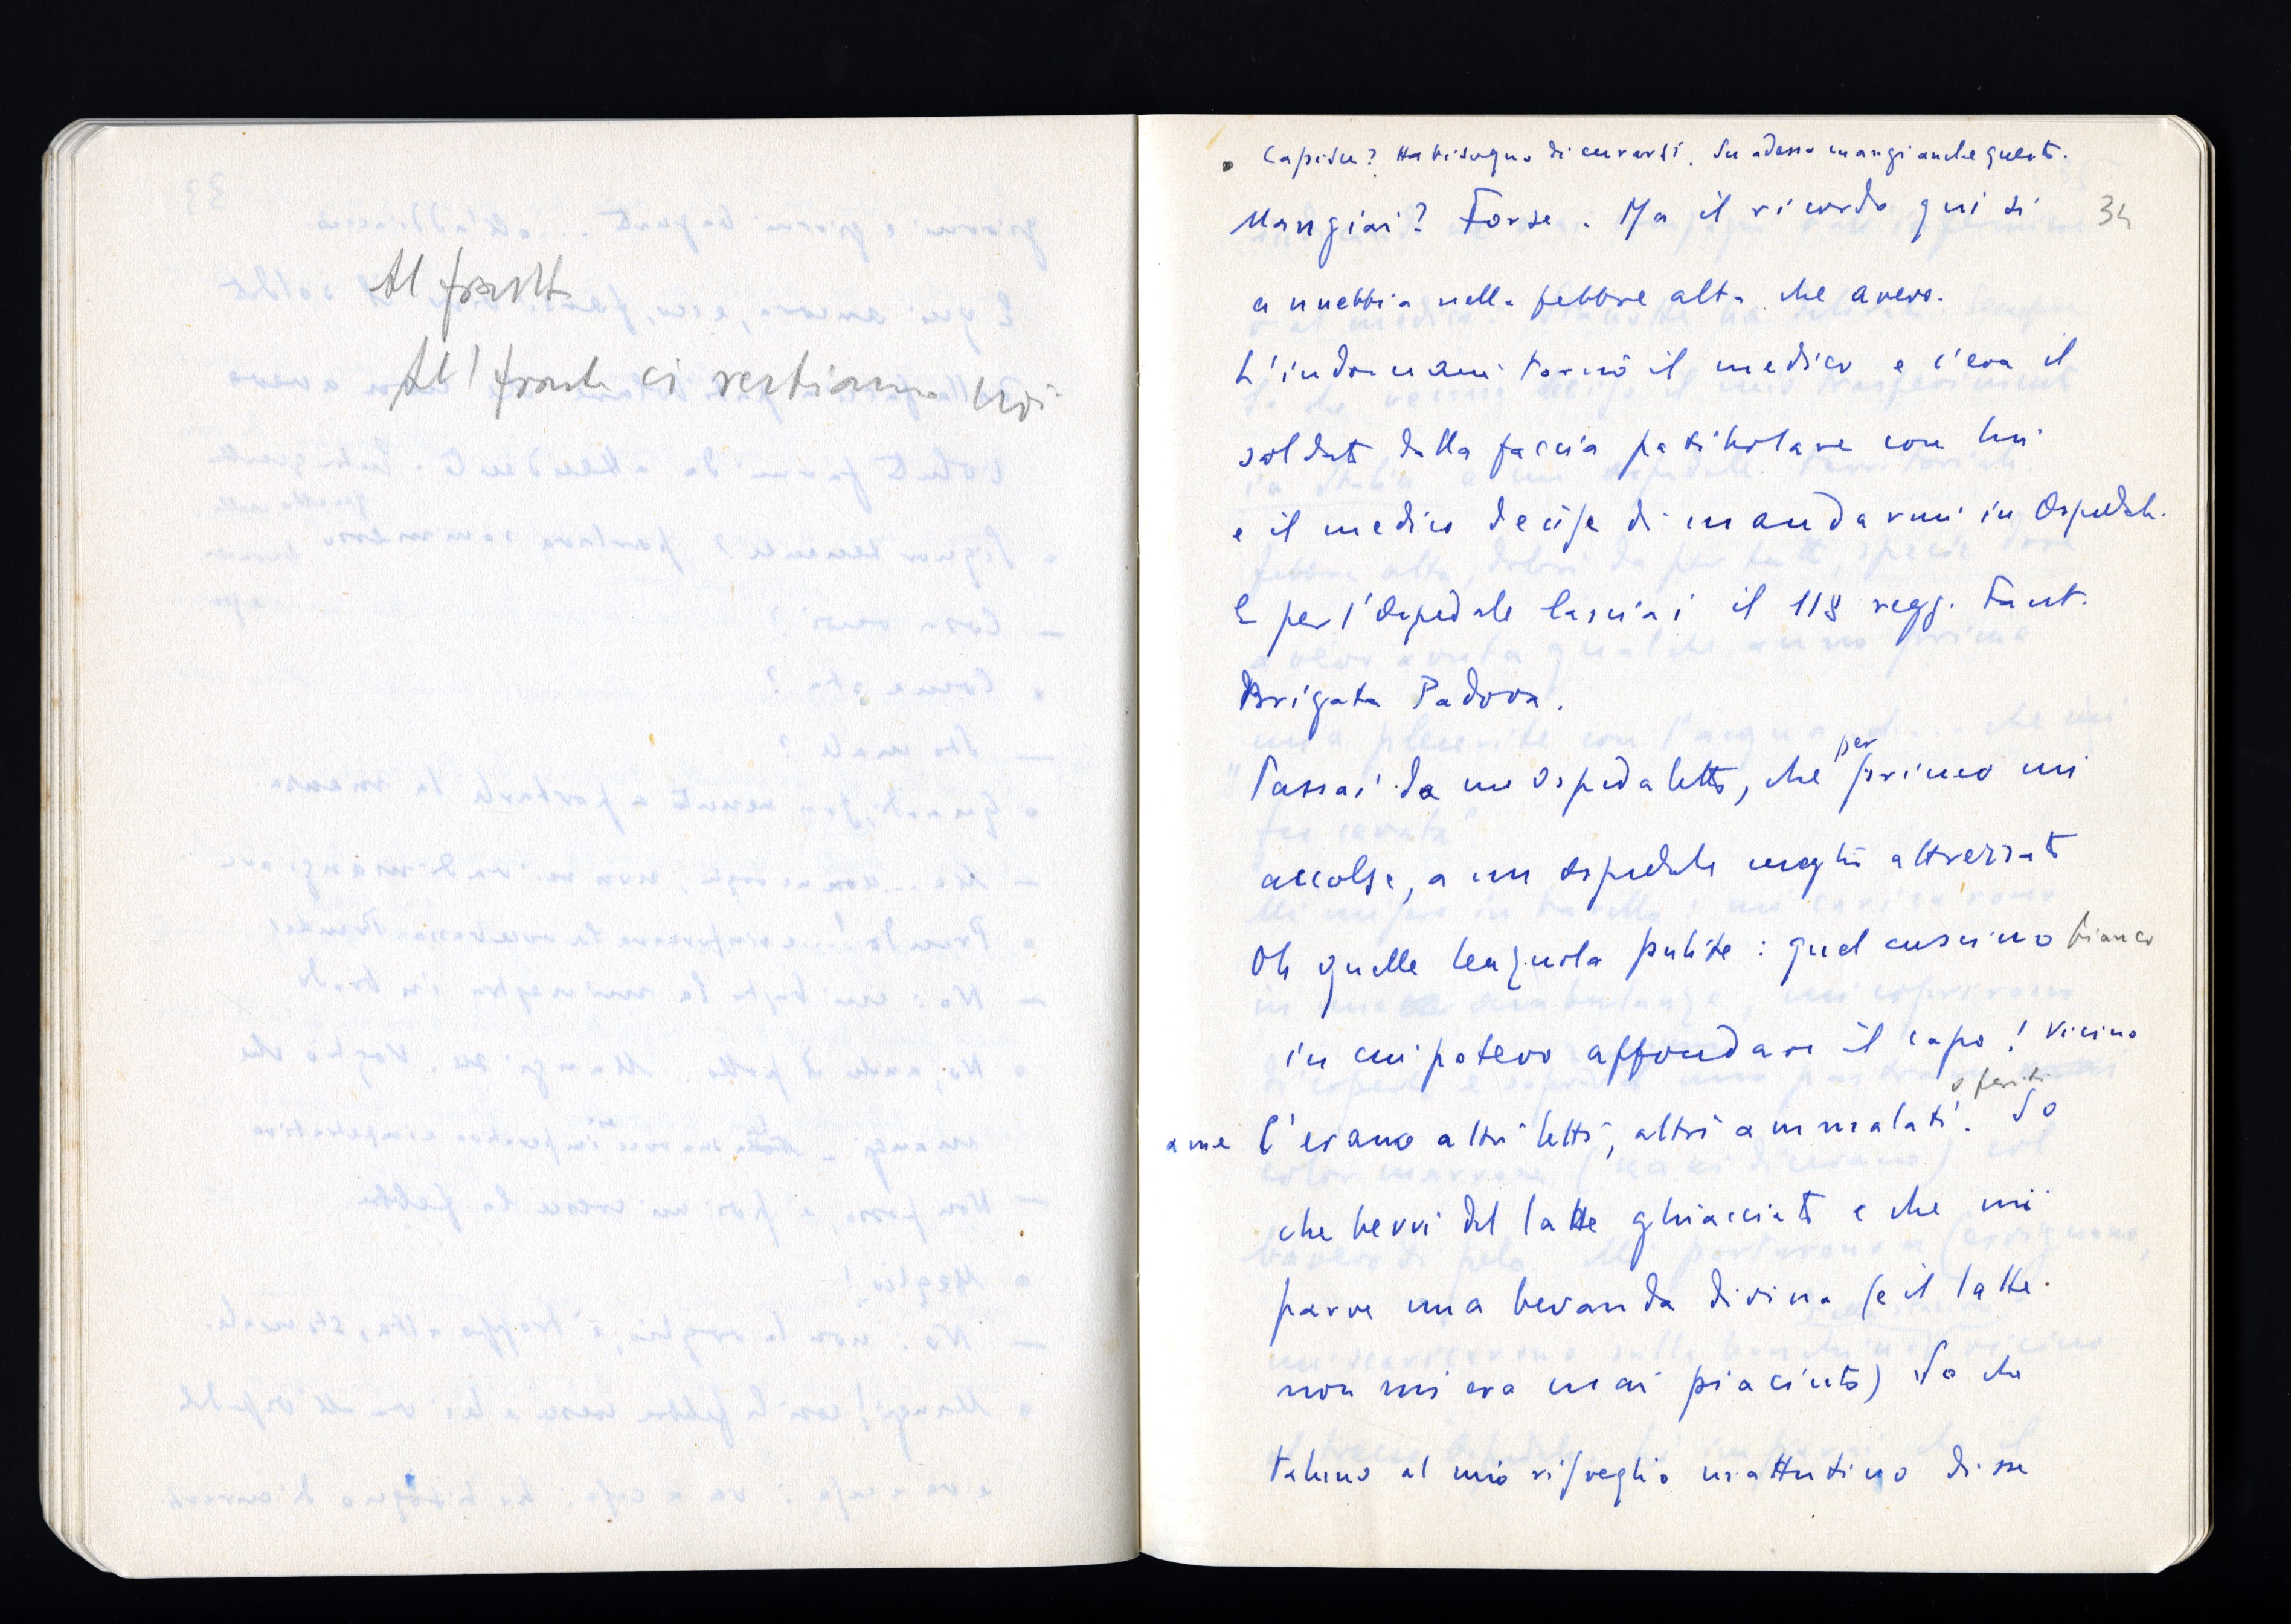 Al fronte
Al fronte ci restiamo noi
• Capisce? Ha bisogno di curarsi. Su adesso mangi anche questo.
34
Mangiai? Forse. Ma il ricordo qui si
annebbia nella febbre alta che avevo.
L'indomani tornò il medico e c'era il
soldato dalla faccia patibolare con lui
e il medico decise di mandarmi in Ospedale.
E per l'Ospedale lasciai il 118 regg. Fant.
Brigata Padova.
Passai da un ospedaletto, che per primo mi
accolse, a un ospedale meglio attrezzato
Oh quelle lenzuola pulite: quel cuscino bianco
in cui potevo affondare il capo! Vicino
a me C'erano altri letti, altri ammalati o feriti. So
che bevvi del latte ghiacciato e che mi
parve una bevanda divina (e il latte
non mi era mai piaciuto) So che
taluno al mio risveglio mattutino disse